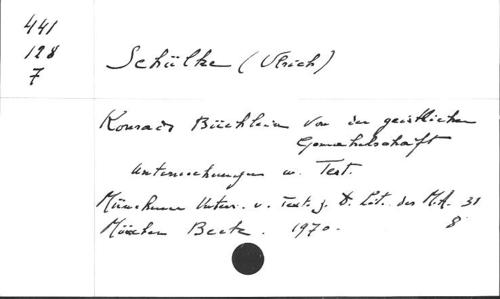 441
128
7
Schülke (Ulrich)
Konrads Büchlein von der geistlichen
Gemahelschaft
Untersuchungen u. Text.
Münchener Unters. u. Text. z. D. Lit. des M.A. 31
8
München Beck. 1970.